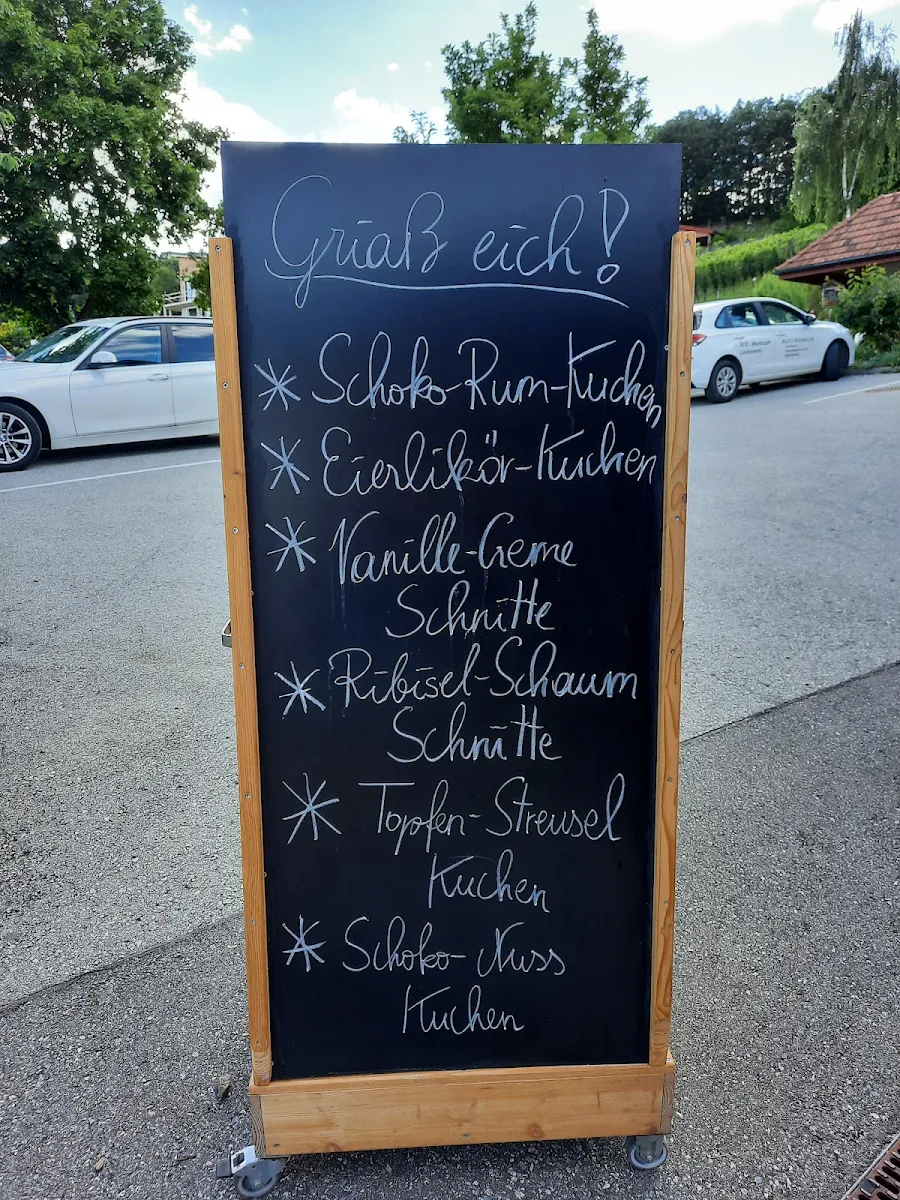 Griaß eich!
* Schoko-Rum-Kuchen
* Eierlikör-Kuchen
* Vanille-Creme
Schnitte
* Ribisel-Schaum
Schnitte
* Topfen-Streusel
Kuchen
* Schoko-Nuss
Kuchen